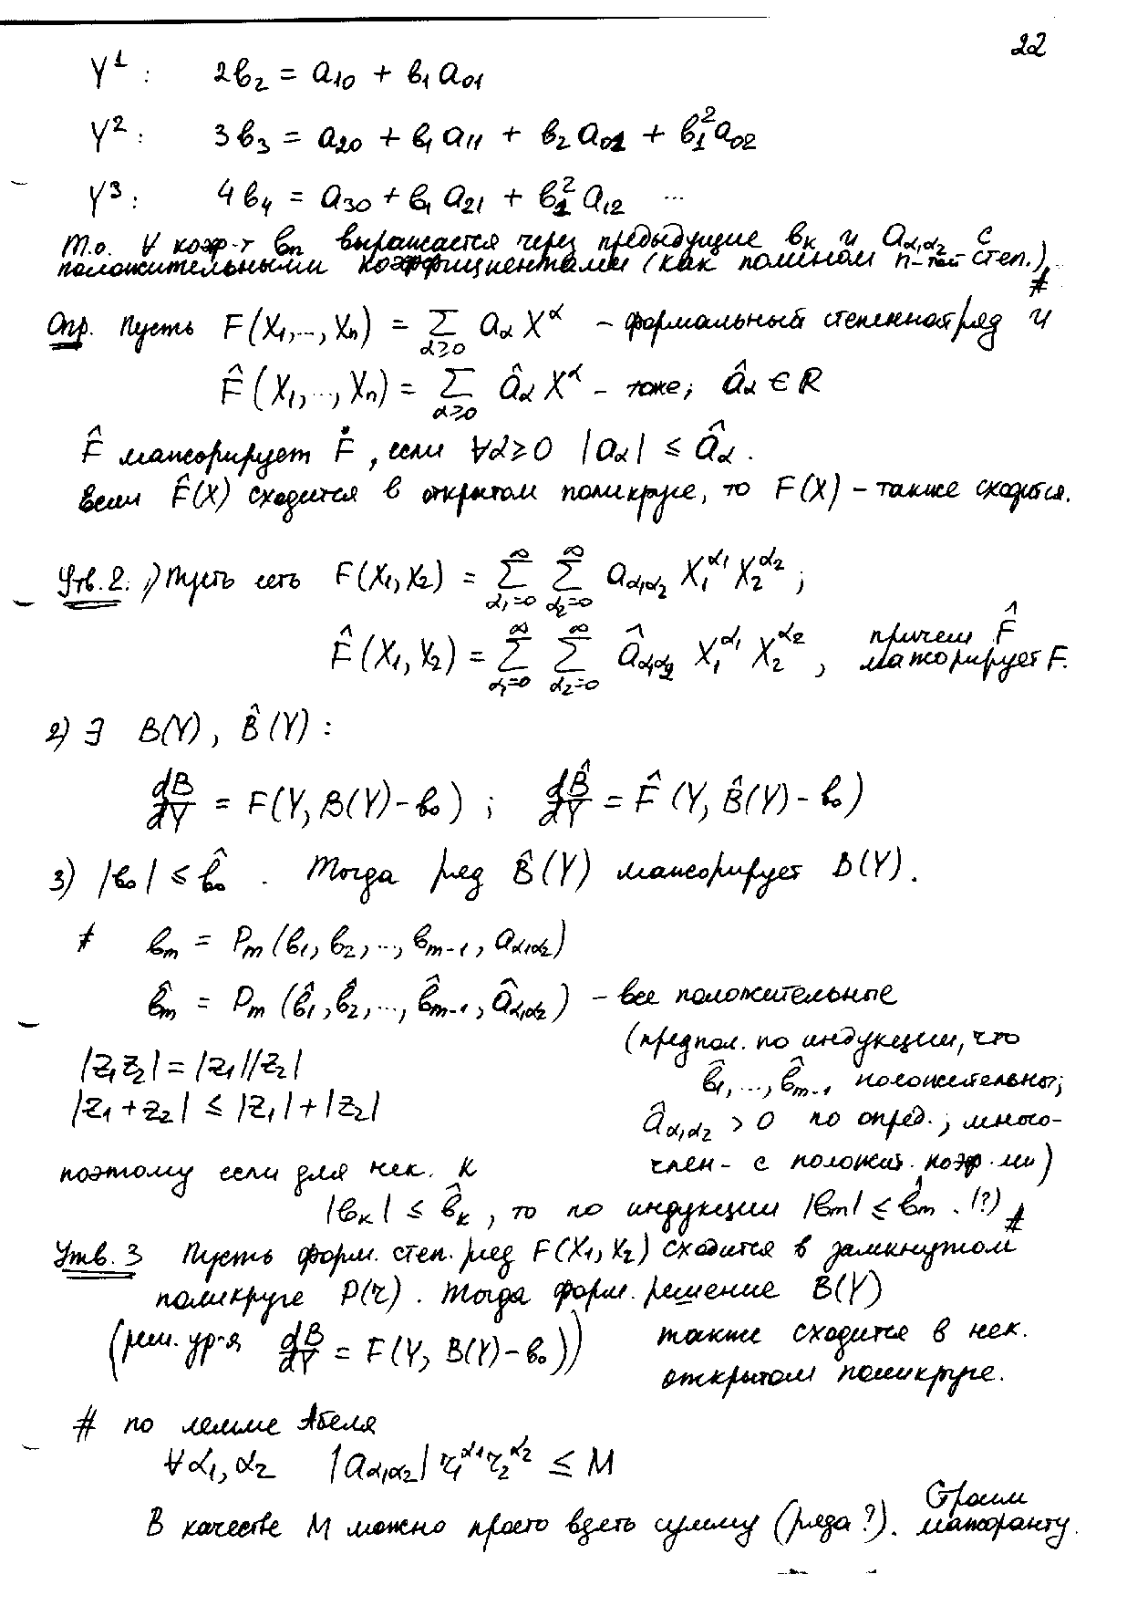 22
Y¹ : 2b₂ = a₁₀ + b₁a₀₁
Y² : 3b₃ = a₂₀ + b₁a₁₁ + b₂a₀₁ + b₁²a₀₂
Y³ : 4b₄ = a₃₀ + b₁a₂₁ + b₁²a₁₂ ...
Т.о. ∀ коэф-т bₙ выражается через предыдущие bₖ и a_{α₁α₂} с
положительными коэффициентами (как полином n-той степ.) #
Опр. Пусть F(X₁,...,Xₙ) = Σ_{α≥0} a_α X^α – формальный степенной ряд и
F̂(X₁,...,Xₙ) = Σ_{α≥0} â_α X^α – тоже; â_α ∈ R
F̂ мажорирует F, если ∀α≥0 |a_α| ≤ â_α.
Если F̂(X) сходится в открытом поликруге, то F(X) – также сходится.
Утв. 2. 1) Пусть есть F(X₁,X₂) = Σ_{α₁=0}^∞ Σ_{α₂=0}^∞ a_{α₁α₂} X₁^{α₁} X₂^{α₂} ;
F̂(X₁,X₂) = Σ_{α₁=0}^∞ Σ_{α₂=0}^∞ â_{α₁α₂} X₁^{α₁} X₂^{α₂}, причем F̂ мажорирует F.
2) ∃ B(Y), B̂(Y) :
dB/dY = F(Y, B(Y)–b₀) ; dB̂/dY = F̂(Y, B̂(Y)–b₀)
3) |b₀| ≤ b̂₀ . Тогда ряд B̂(Y) мажорирует B(Y).
# bₘ = Pₘ(b₁, b₂,..., bₘ₋₁, a_{α₁α₂})
b̂ₘ = Pₘ(b̂₁, b̂₂,..., b̂ₘ₋₁, â_{α₁α₂}) – все положительные
(предпол. по индукции, что
b̂₁,..., b̂ₘ₋₁ положительны;
â_{α₁α₂} > 0 по опред.; много-
член – с положит. коэф-ми)
|z₁z₂| = |z₁||z₂|
|z₁+z₂| ≤ |z₁|+|z₂|
поэтому если для нек. k
|bₖ| ≤ b̂ₖ, то по индукции |bₘ| ≤ b̂ₘ. (?) #
Утв. 3 Пусть форм. степ. ряд F(X₁,X₂) сходится в замкнутом
поликруге P(r). Тогда форм. решение B(Y)
(реш. ур-я dB/dY = F(Y, B(Y)–b₀)) также сходится в нек.
открытом поликруге.
# по лемме Абеля
∀α₁,α₂ |a_{α₁α₂}| r₁^{α₁} r₂^{α₂} ≤ M
В качестве M можно просто взять сумму (ряда?). Строим мажоранту.